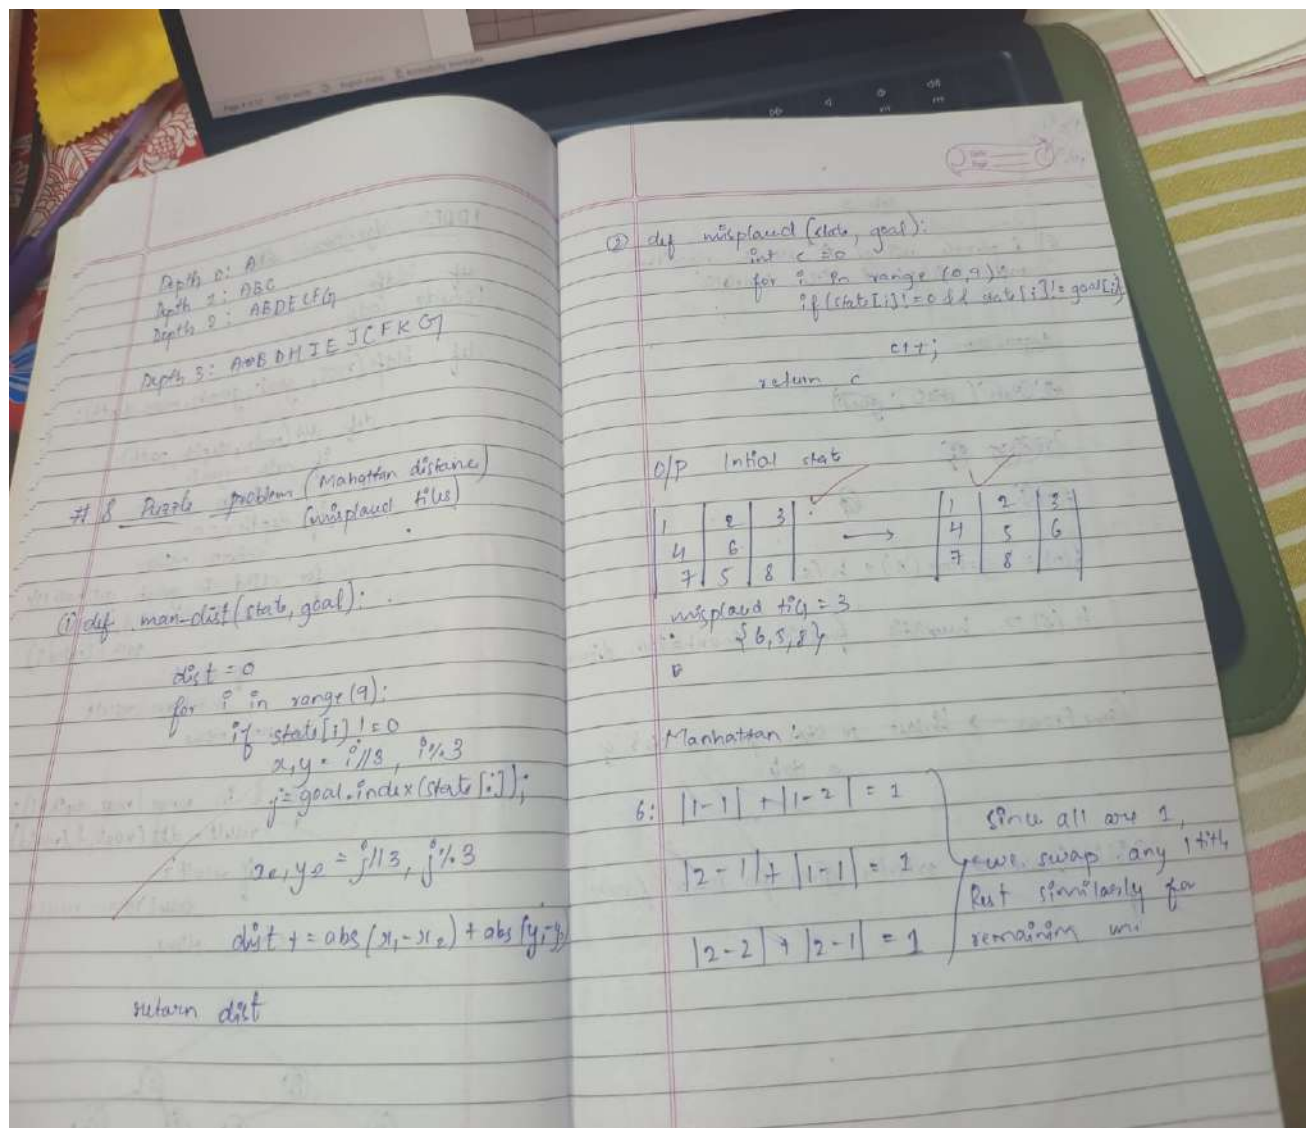 Depth 0: A
Depth 1: ABC
Depth 2: ABDECFG
Depth 3: ABDHIEJCFKG
# 8 Puzzle problem (Mahattan distane)
(misplaud tiles)
(1) def man-dist(state, goal):
dist = 0
for i in range(9):
if state[i] != 0
x,y = i//3, i%3
j = goal.index(state[i]);
x2, y2 = j//3, j%3
dist += abs(x1-x2) + abs(y1-y2)
return dist
(2) def misplaud (state, goal):
int c = 0
for i in range (0,9)
if(state[i] != 0 && state[i] != goal[i]
c++;
return c
O/P Intial stat
1 2 3 1 2 3
4 6 → 4 5 6
7 5 8 7 8
misplaud = 3
{6,5,8}
Manhattan:
6: |1-1| + |1-2| = 1
|2-1| + |1-1| = 1
|2-2| + |2-1| = 1
since all are 1,
we swap any 1
Rest similarly for
remaining